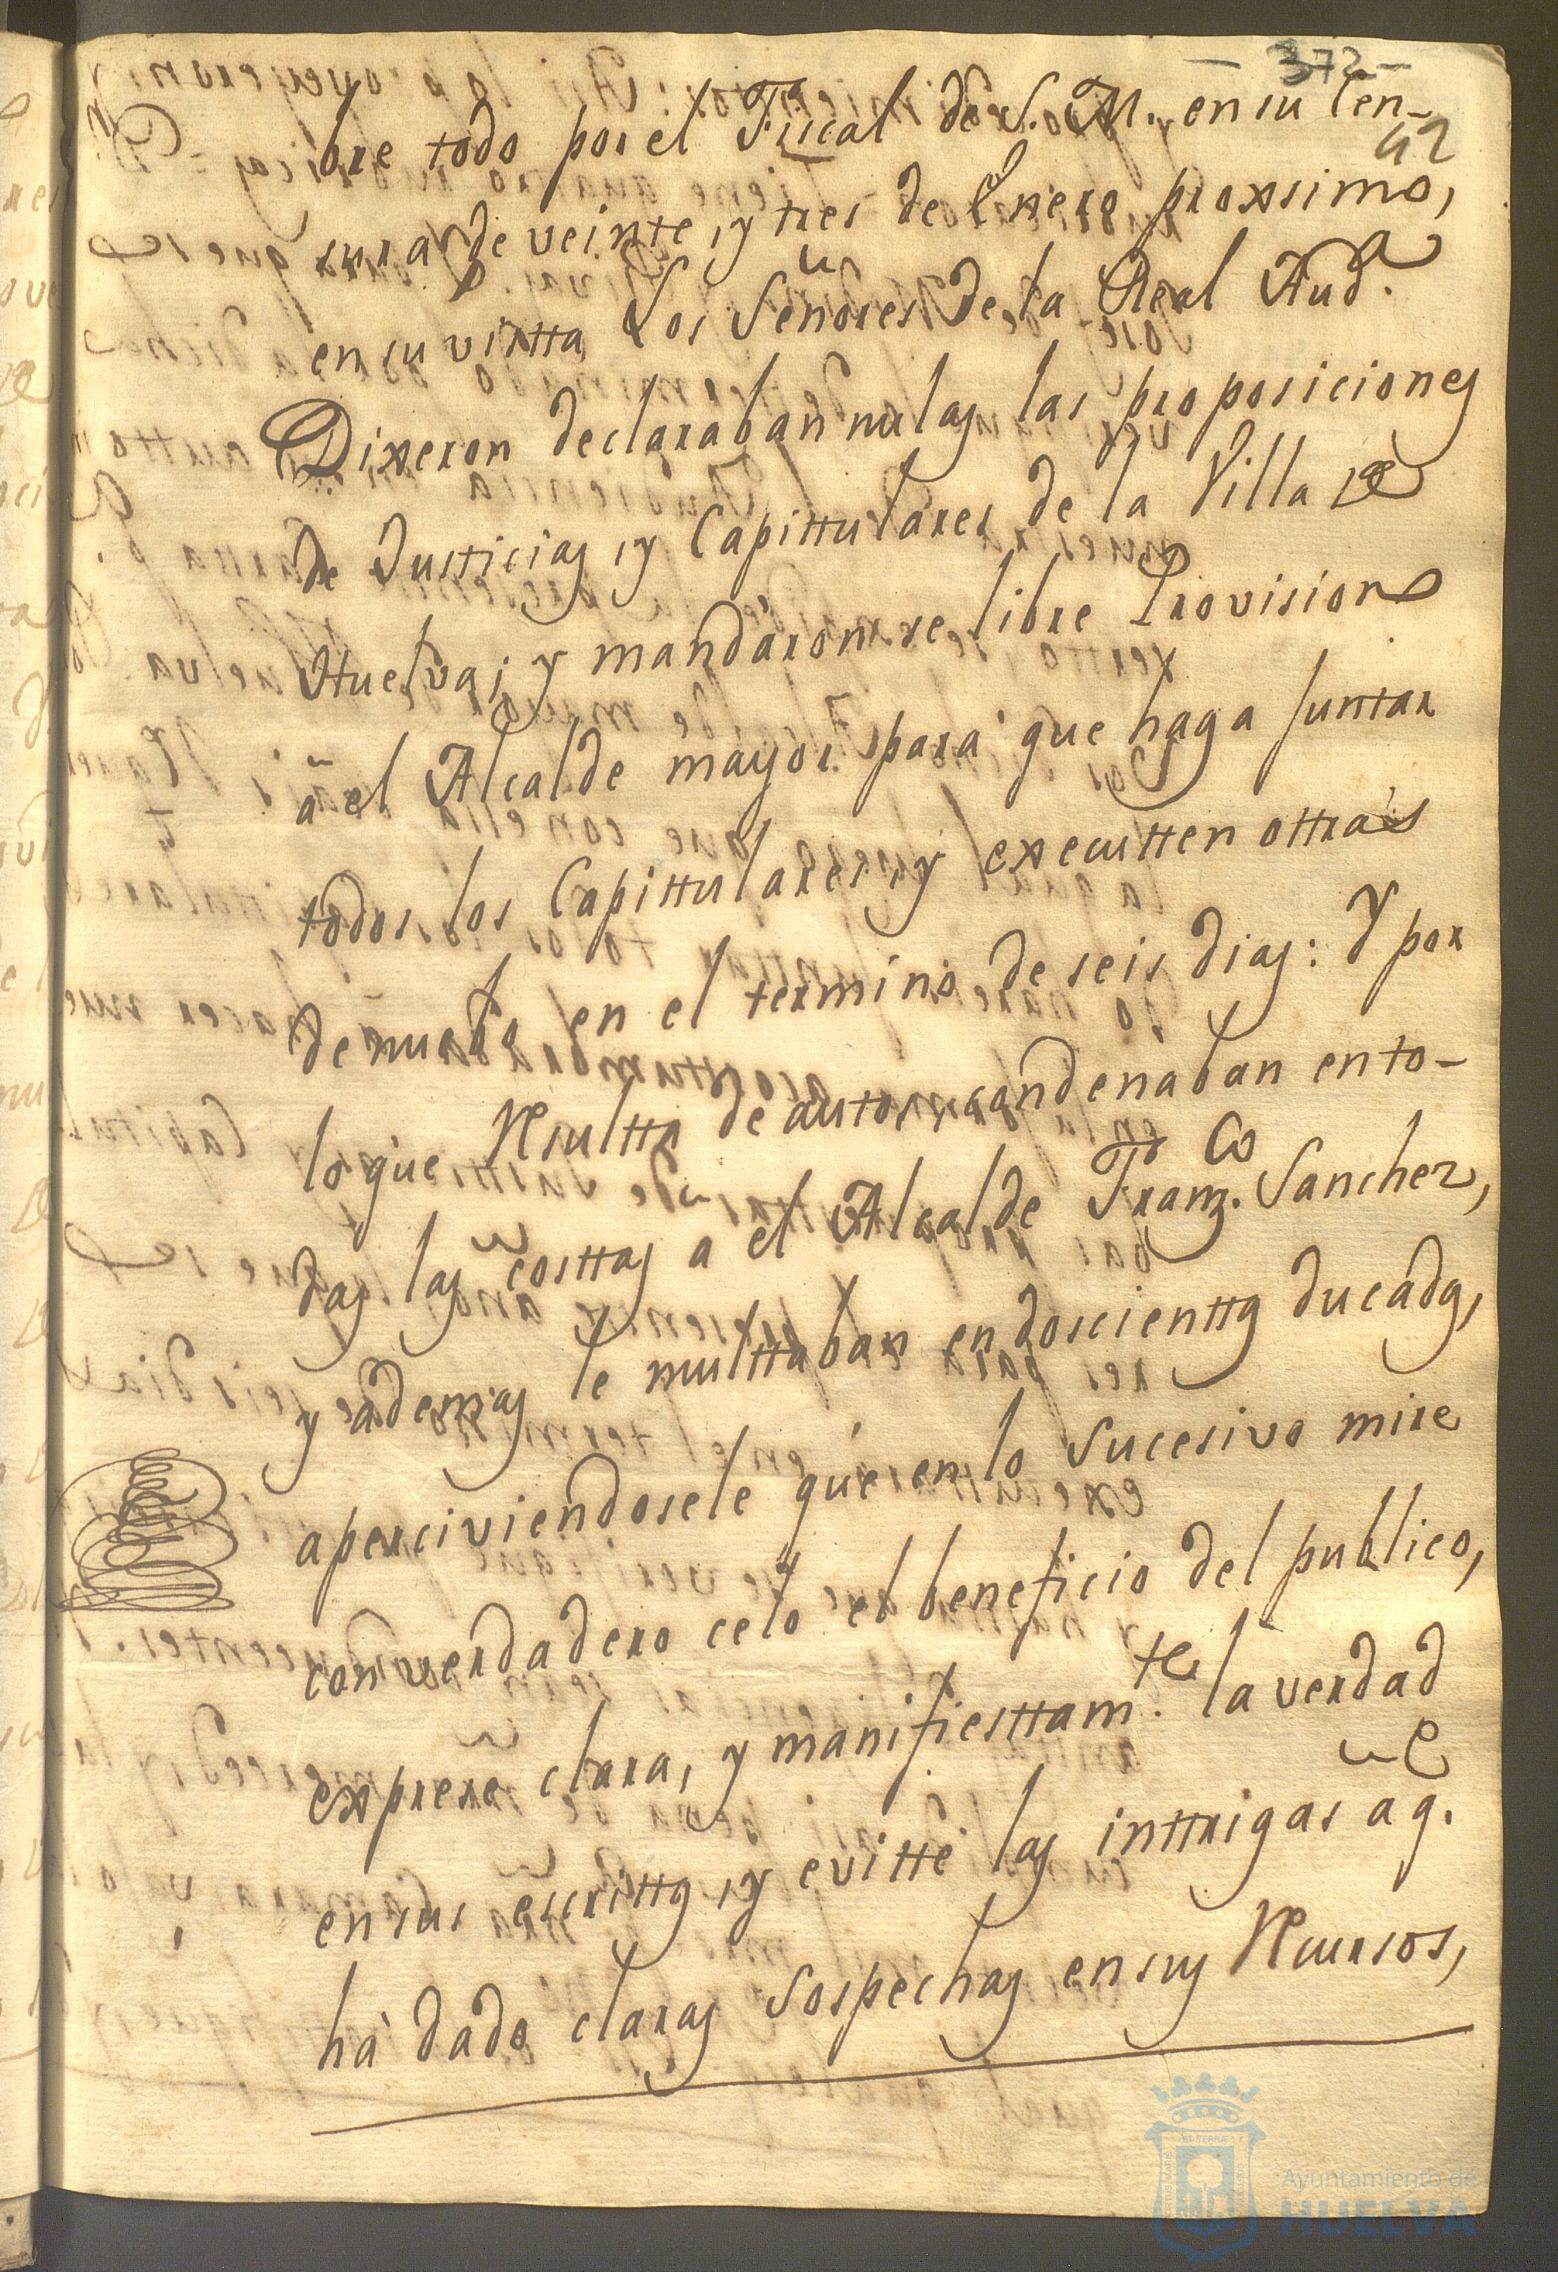 - 372 -
42
bre todo por el Fiscal de S. M. en su Cen-
sura de veinte, y tres de Enero proxsimo,
en su vistta Los Señores de la Real Auda.
Dixeron declaraban nulas las proposiciones
de Justicias, y Capittulares de la Villa de
Huelva; y mandaron se libre Provision
a el Alcalde mayor para que haga Juntar
todos los Capittulares, y executten ottras
de nuebo en el termino de seis dias: Y por
lo que Resultta de autos, condenaban en to-
das las costtas a el Alcalde Franco. Sanchez,
y ademas le multtaban en doscienttos ducados,
aperciviendosele que en lo Sucesivo mire
con verdadero celo el beneficio del publico,
exprese clara, y manifiesttamte. la verdad
en sus escrittos, y evitte las inttrigas a qe.
hà dado claras Sospechas en sus Recursos,
Ayuntamiento de
HUELVA